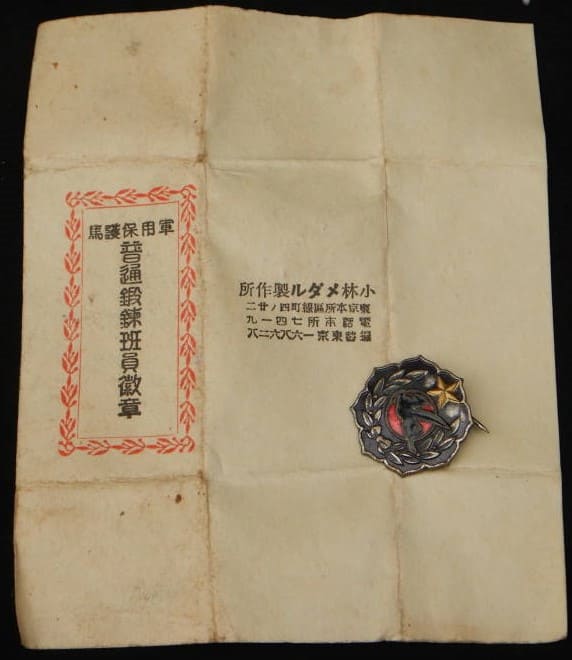 軍用保護馬
普通鍛鍊班員徽章
小林メダル製作所
東京本所區緑町四ノ廿二
電話本所七四一九
振替東京一六八六二八